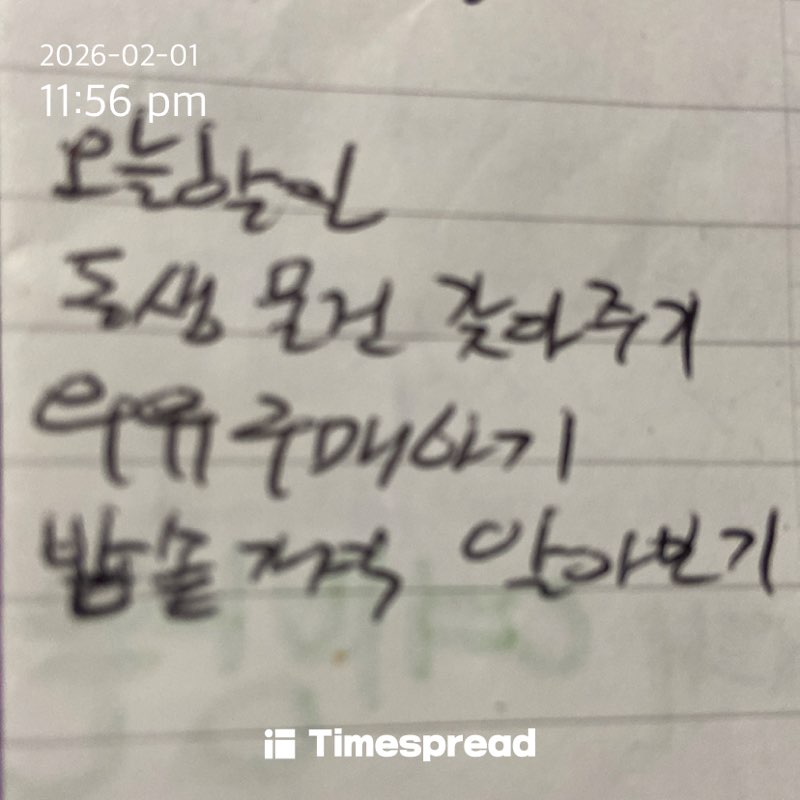 2026-02-01
11:56 pm
오늘할인
동생 물건 찾아주기
우유 구매하기
밥솥 가격 알아보기
Timespread